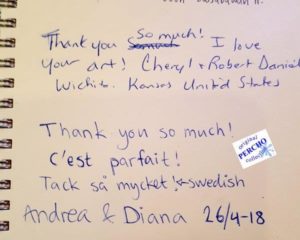 Thank you so much! I love
your art! Cheryl & Robert Daniel
Wichita, Kansas United States
Thank you so much!
C'est parfait!
Tack så mycket! ← swedish
Andrea & Diana 26/4-18
original
PERCHO